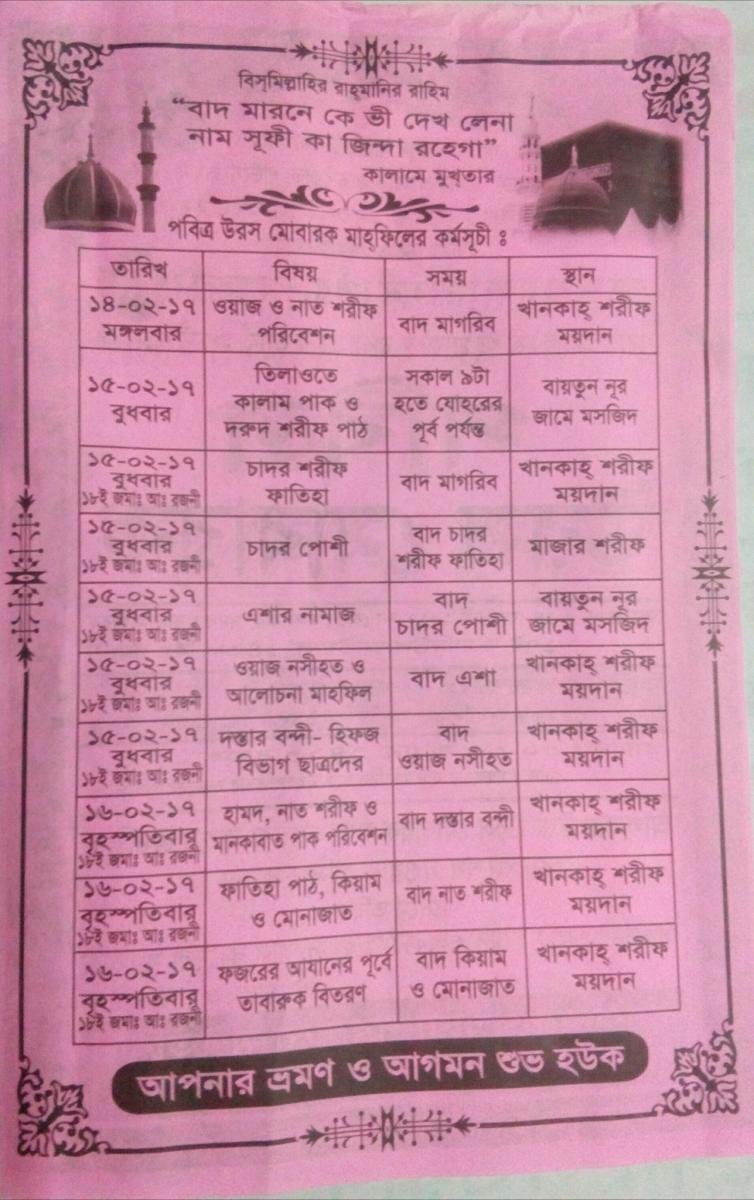 বিস্‌মিল্লাহির রাহ্‌মানির রাহিম
“বাদ মারনে কে ভী দেখ লেনা
নাম সূফী কা জিন্দা রহেগা”
কালামে মুখ্‌তার
পবিত্র উরস মোবারক মাহ্‌ফিলের কর্মসূচী ঃ
তারিখ বিষয় সময় স্থান
১৪-০২-১৭ ওয়াজ ও নাত শরীফ খানকাহ্ শরীফ
মঙ্গলবার পরিবেশন বাদ মাগরিব ময়দান
তিলাওতে সকাল ৯টা
১৫-০২-১৭ কালাম পাক ও হতে যোহরের বায়তুন নূর
বুধবার দরুদ শরীফ পাঠ পূর্ব পর্যন্ত জামে মসজিদ
১৫-০২-১৭ চাদর শরীফ খানকাহ্ শরীফ
বুধবার ফাতিহা বাদ মাগরিব ময়দান
১৮ই জমাঃ আঃ রজনী
১৫-০২-১৭ বাদ চাদর
বুধবার চাদর পোশী শরীফ ফাতিহা মাজার শরীফ
১৮ই জমাঃ আঃ রজনী
১৫-০২-১৭ বাদ বায়তুন নূর
বুধবার এশার নামাজ চাদর পোশী জামে মসজিদ
১৮ই জমাঃ আঃ রজনী
১৫-০২-১৭ ওয়াজ নসীহত ও খানকাহ্ শরীফ
বুধবার আলোচনা মাহফিল বাদ এশা ময়দান
১৮ই জমাঃ আঃ রজনী
১৫-০২-১৭ দস্তার বন্দী- হিফজ বাদ খানকাহ্ শরীফ
বুধবার বিভাগ ছাত্রদের ওয়াজ নসীহত ময়দান
১৮ই জমাঃ আঃ রজনী
১৬-০২-১৭ হামদ, নাত শরীফ ও খানকাহ্ শরীফ
বৃহস্পতিবার মানকাবাত পাক পরিবেশন বাদ দস্তার বন্দী ময়দান
১৮ই জমাঃ আঃ রজনী
১৬-০২-১৭ ফাতিহা পাঠ, কিয়াম খানকাহ্ শরীফ
বৃহস্পতিবার ও মোনাজাত বাদ নাত শরীফ ময়দান
১৮ই জমাঃ আঃ রজনী
১৬-০২-১৭ ফজরের আযানের পূর্বে বাদ কিয়াম খানকাহ্ শরীফ
বৃহস্পতিবার তাবারুক বিতরণ ও মোনাজাত ময়দান
১৮ই জমাঃ আঃ রজনী
আপনার ভ্রমণ ও আগমন শুভ হউক